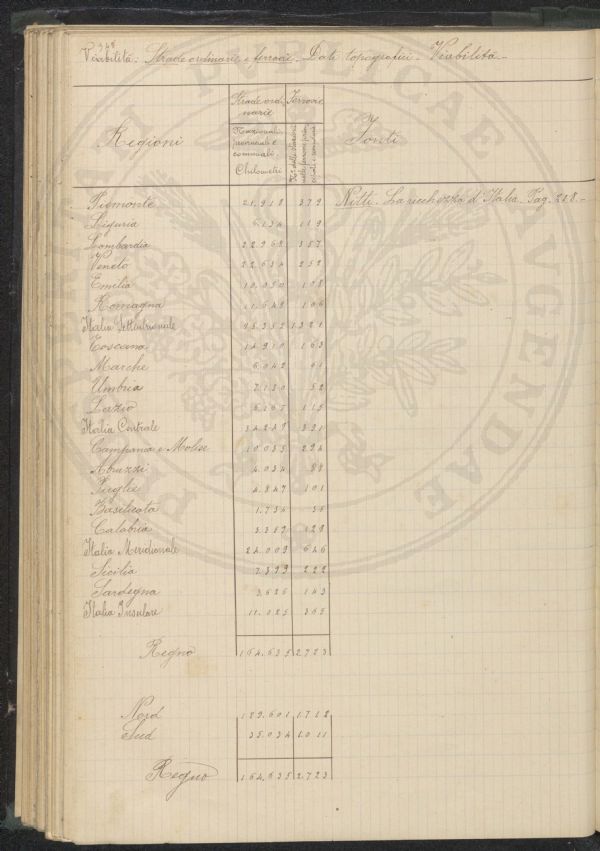 348
Viabilità: Strade ordinarie e ferrovie - Dati topografici - Viabilità -
Regioni
Strade ordinarie
Nazionali provinciali e comunali. Chilometri
Ferrovie
N.o delle stazioni
Fonti
Piemonte 21.918 379 Nitti - La ricchezza d'Italia. Pag. 218. -
Liguria 6.134 119
Lombardia 22.968 357
Veneto 22.634 252
Emilia 10.050 108
Romagna 11.648 106
Italia Settentrionale 95.352 1.321
Toscana 14.910 163
Marche 6.042 61
Umbria 7.130 52
Lazio 6.167 115
Italia Centrale 34.249 391
Campania e Molise 10.035 294
Abruzzi 4.034 88
Puglie 4.847 101
Basilicata 1.734 35
Calabria 3.359 128
Italia Meridionale 24.009 646
Sicilia 7.399 222
Sardegna 3.626 143
Italia Insulare 11.025 365
Regno 164.635 2723
Nord 129.601 1.712
Sud 35.034 1.011
Regno 164.635 2723